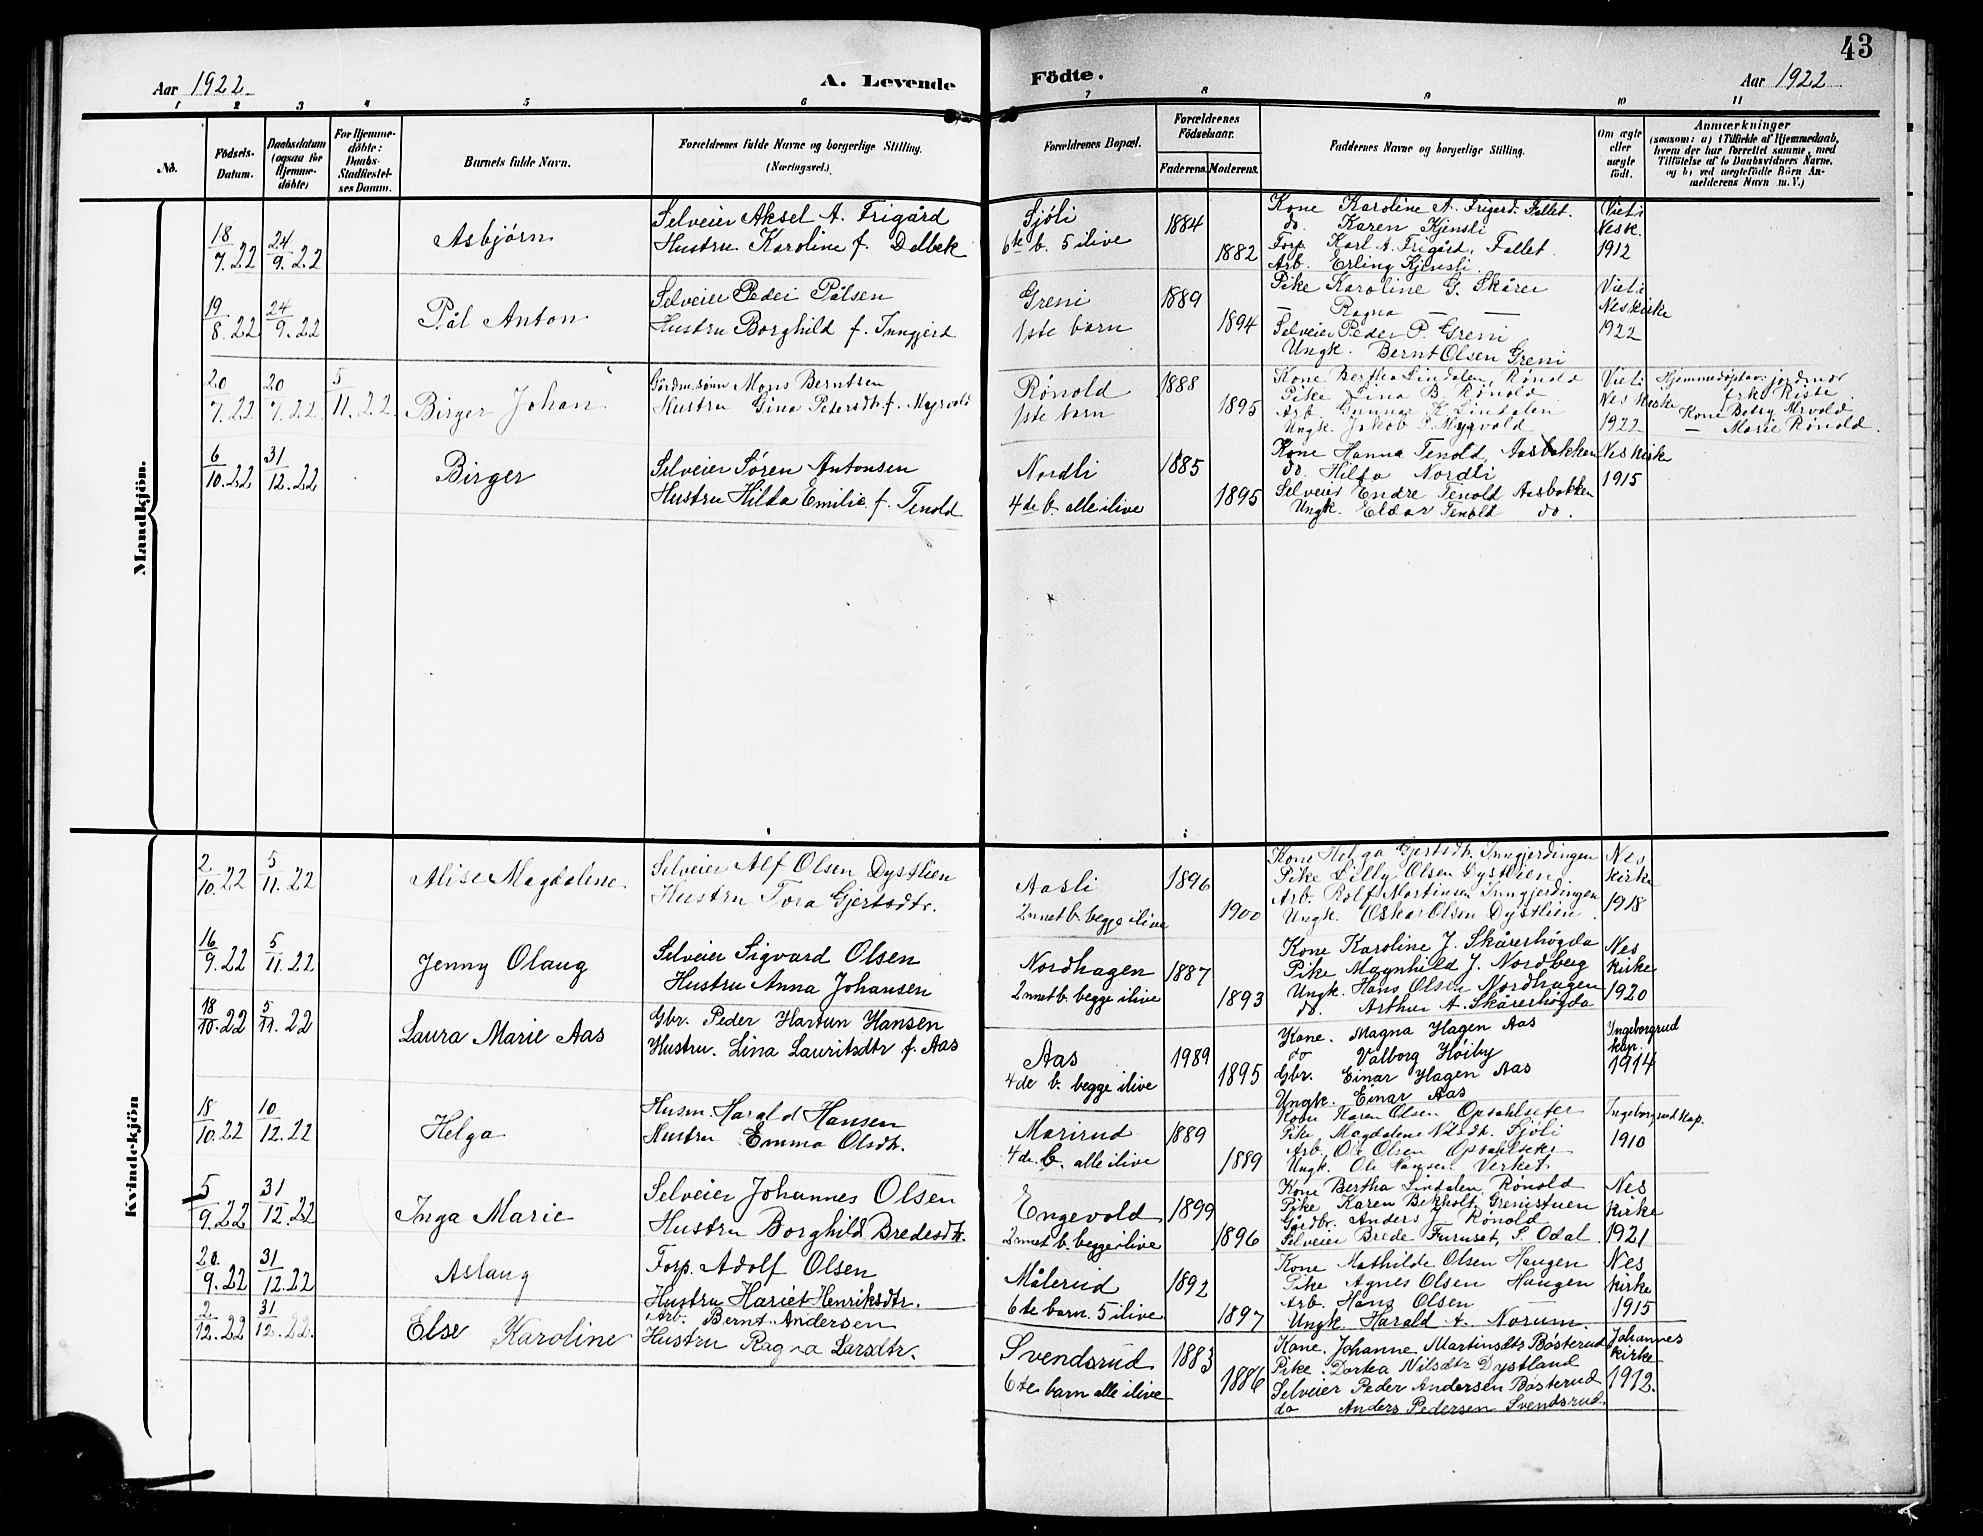 43
Aar 1922
A. Levende
Födte.
Aar 1922
1 2 3 4 5 6 7 8 9 10 11
No.
Födsels-
Datum.
Daabsdatum
(ogsaa for
Hjemme-
döbte)
For Hjemme-
döbte:
Daabs-
Stadfæstel-
ses Datum.
Barnets fulde Navn.
Forældrenes fulde Navne og borgerlige Stilling.
(Næringsvei.)
Forældrenes Bopæl.
Forældrenes
Födselsaar.
Faderens. Moderens.
Faddernes Navne og borgerlige Stilling.
Om ægte
eller
uægte
født.
Anmærkninger
(saasom: a) i Tilfælde af Hjemmedaab,
hvem der har forrettet samme, med
Tilføielse af to Daabsvidners Navne.
og b) ved uægtefödte Börn An-
melderens Navn m. V.)
Mandkjön.
18/7.22 24/9.22
Asbjörn
Selveier Aksel A. Frigård
Hustru Karoline f. Dalbek
Sjöli
6te b. 5 ilive
1884
1882
Kone Karoline A. Frigård. Fallet.
do. Karen Kjensli
Forp. Karl A. Frigård, Fallet.
Arb. Erling Kjensli.
Viet i
Nesk.
1912
19/8.22 24/9.22
Pål Anton
Selveier Peder Pålsen
Hustru Borghild f. Inngjerd
Greni
1ste barn
1889
1894
Pike Karoline G. Skårer
— Ragna — —
Selveier Peder P. Greni
Ungk. Bernt Olsen Greni
Viet i
Nes kirke
1922
20/7.22 20/7.22 5/11.22
Birger Johan
Gårdm.sönn Mons Berntsen
Hustru Gina Petersdtr f. Myrvold
Rönold
1ste barn
1888
1895
Kone Bertha Lindalen, Rönold
Pike Lina B. Rönold
Arb. Gunnar K. Lindalen
Ungk. Jakob P. Myrvold
Viet i
Nes kirke
1922
Hjemmedöpt av jordmor
frk. Riste.
Kone Betsy Myrvold
— Marie Rönold.
6/10.22 31/12.22
Birger
Selveier Sören Antonsen
Hustru Hilda Emilie f. Tenold
Nordli
4de b. alle ilive
1885
1895
Kone Hanna Tenold Aasbakken
do. Hilda Nordli
Selveier Endre Tenold Aasbakken
Ungk. Eldar Tenold do.
Nes kirke
1915
Kvindekjön
2/10.22 5/11.22
Alise Magdalene
Selveier Alf Olsen Dystlien
Hustru Tora Gjertsdtr.
Aasli
2nnet b. begge ilive
1896
1900
Kone Helga Gjertsdtr. Inngjerdingen
Pike Lilly Olsen Dystlien
Arb. Rolf Martinsen Inngjerdingen
Ungk. Oskar Olsen Dystlien.
Nes
kirke
1918
16/9.22 5/11.22
Jenny Olaug
Selveier Sigvard Olsen
Hustru Anna Johansen
Nordhagen
2nnet b. begge ilive
1887
1893
Kone Karoline J. Skårershögda
Pike Magnhild J. Nordberg
Ungk. Hans Olsen Nordhagen
do. Arthur A. Skårershögda
Nes
kirke
1920
18/10.22 5/11.22
Laura Marie Aas
Gbr. Peder Hartun Hansen
Hustru. Lina Lauritsdtr f. Aas
Aas
4de b. begge ilive
1989
1895
Kone. Magna Hagen Aas
do Valborg Höiby
Gbr. Einar Hagen Aas
Ungk. Einar Aas
Ingeborgrud
kap.
1914
18/10.22 10/12.22
Helga
Husm. Harald Hansen
Hustru Emma Olsdtr.
Marirud
4de b. alle ilive
1889
1889
Kone Karen Olsen Opsahlseter
Pike Magdalene Nilsdtr. Sjöli
Arb. Ole Olsen Opsahlseter
Ungk. Ole Hansen Verket
Ingeborgrud kap.
1910
5/9.22 31/12.22
Inga Marie
Selveier Johannes Olsen
Hustru Borghild Bredesdtr.
Engevold
2nnet b. begge ilive
1899
1896
Kone Bertha Lindalen, Rönold
Pike Karen Bekholt, Grenistuen
Gårdbr. Anders J. Rönold
Selveier Brede Furuset, S. Odal.
Nes
kirke
1921
20/9.22 31/12.22
Aslaug
Forp. Adolf Olsen
Hustru Hariet Henriksdtr.
Målerud
6te barn. 5 ilive
1892
1897
Kone Mathilde Olsen Haugen
Pike Agnes Olsen Haugen
Arb. Hans Olsen
Ungk. Harald A. Norum.
Nes
kirke
1915
2/12.22 31/12.22.
Else Karoline
Arb. Bernt Andersen
Hustru Ragna Larsdtr.
Svendsrud
6te barn alle ilive
1883
1886
Kone. Johanne Martinsdtr Bösterud
Pike. Dortea Nilsdtr Dystland
Selveier Peder Andersen Bösterud
do Anders Pedersen Svendsrud.
Johannes
kirke
1912.